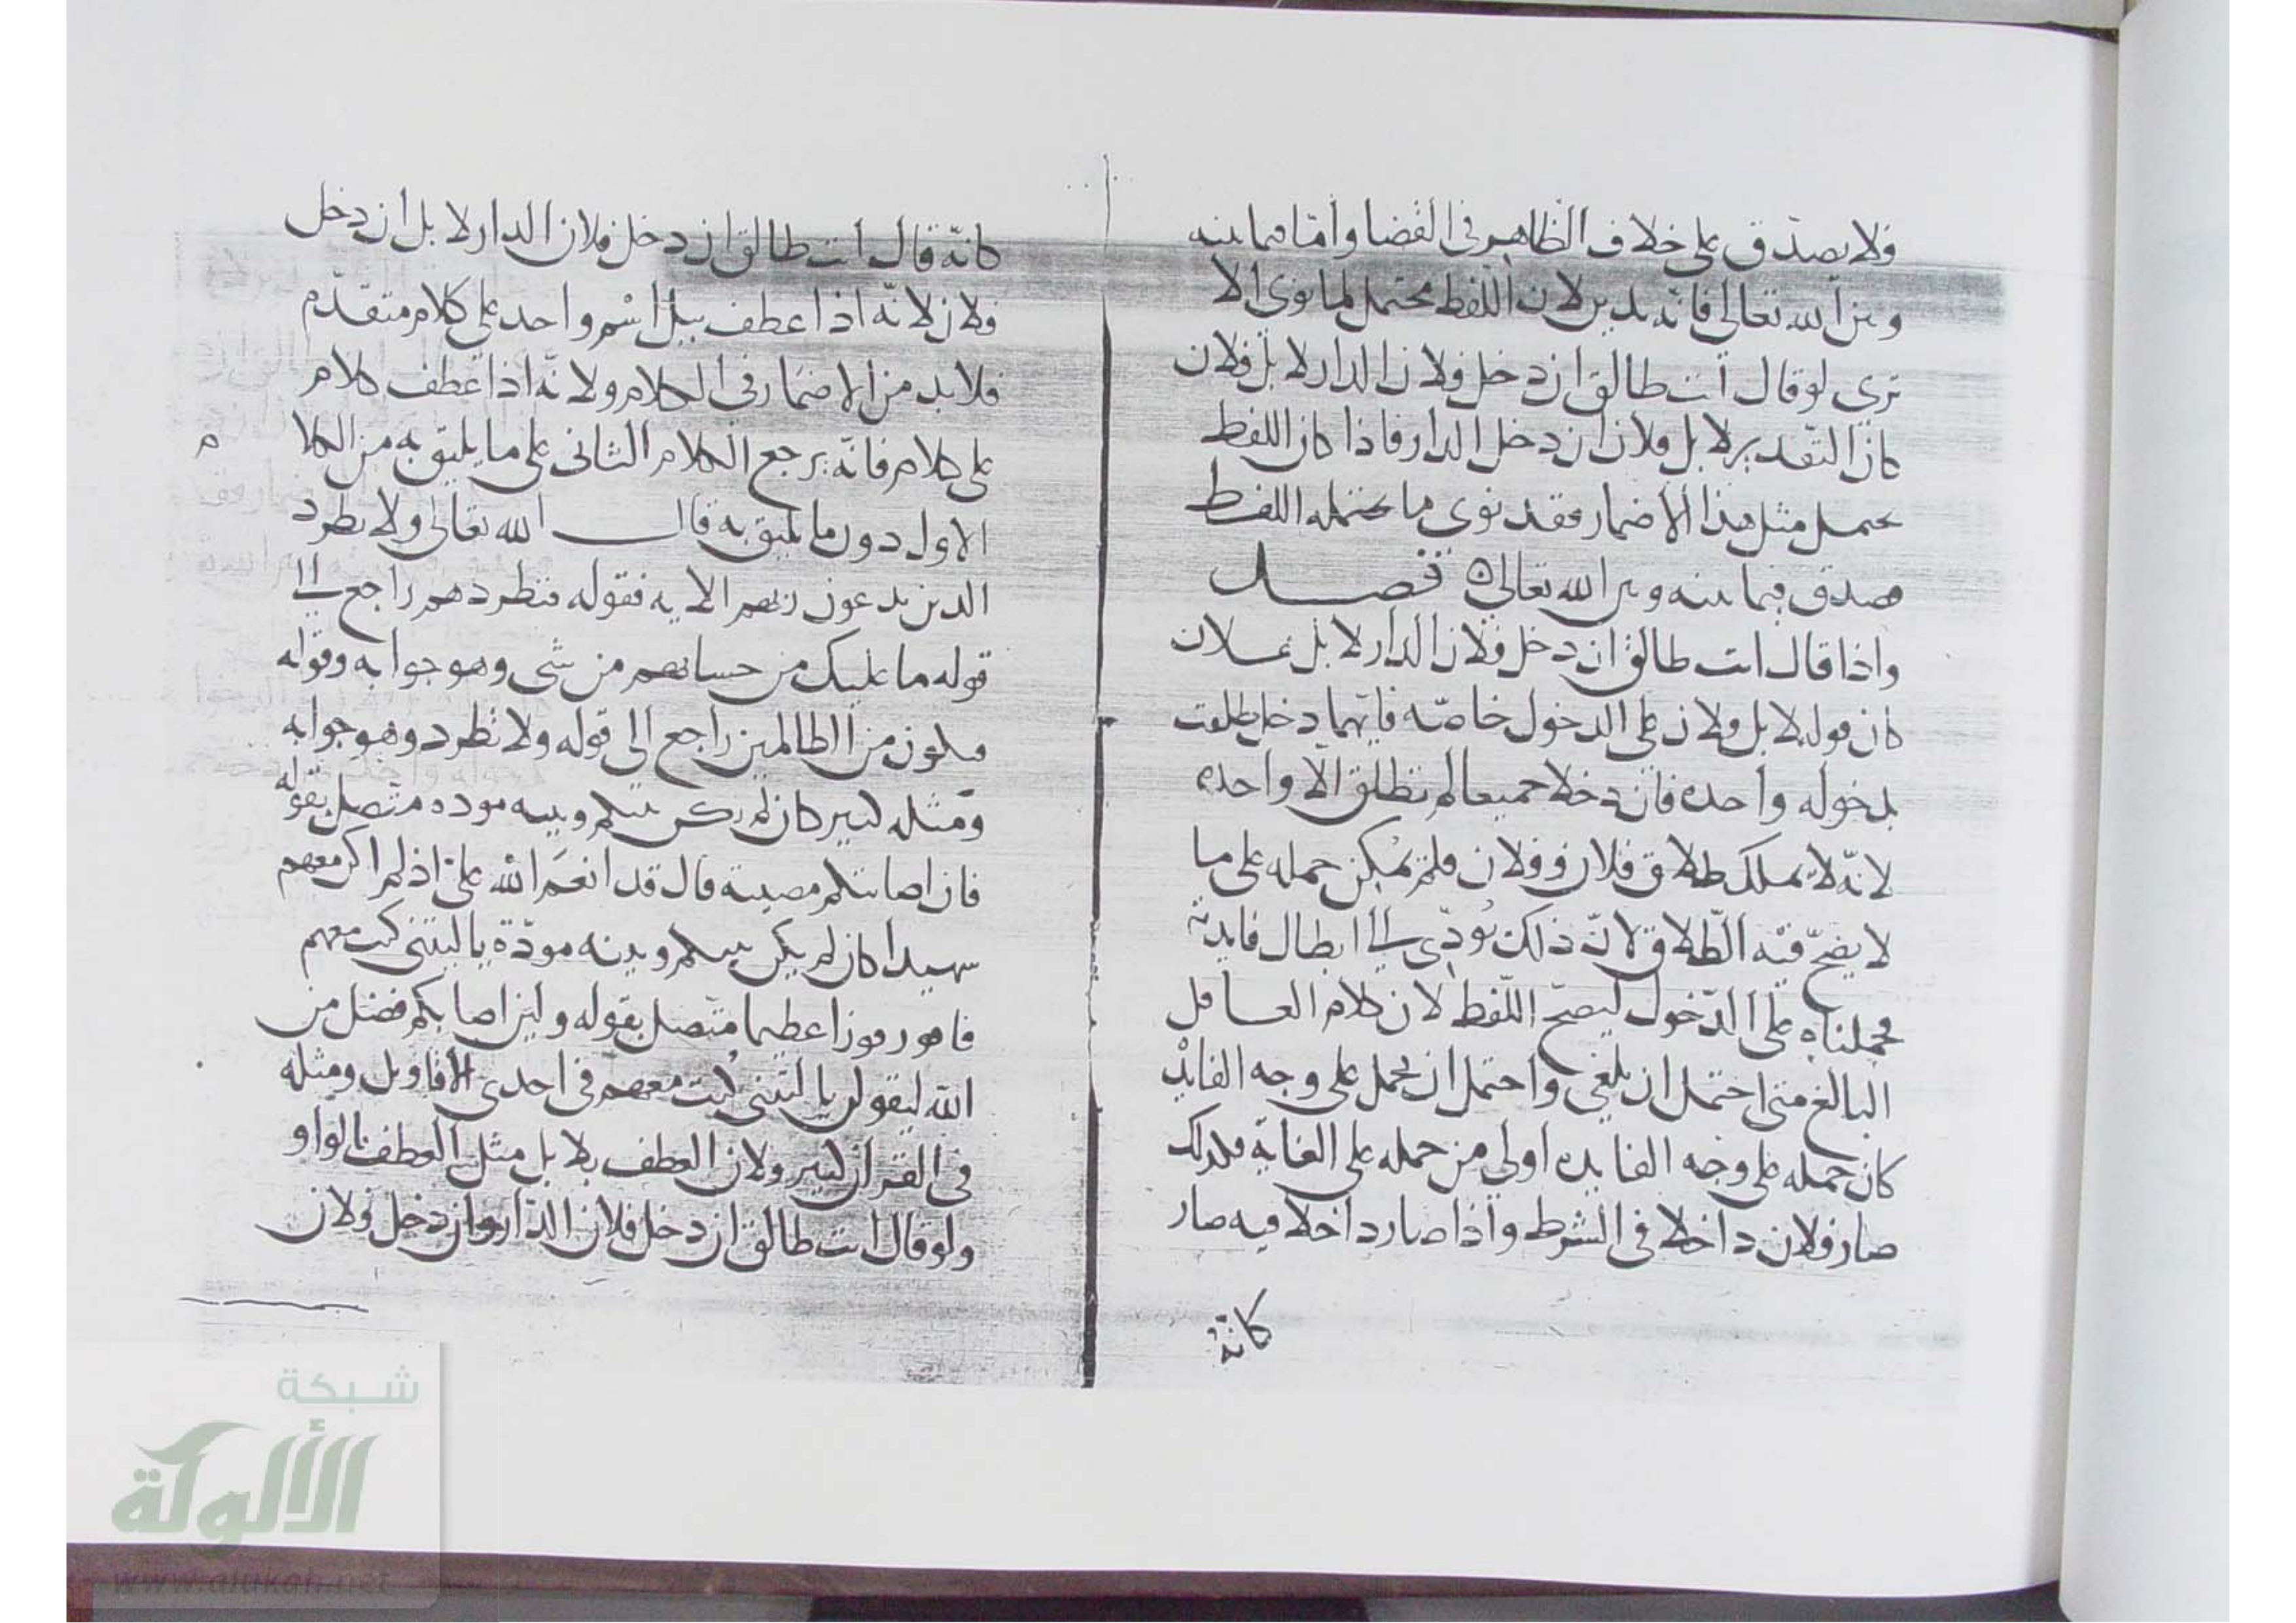 فلا يصدّق على خلاف الظاهر في القضا وامّا فيما بينه
وبين الله تعالى فانّه يدين لان اللفظ محتمل لما نوى الا
ترى لو قال انت طالق ان دخل فلان الدار لا بل فلان
كان التقدير لا بل فلان ان دخل الدار فاذا كان اللفظ
يحتمل مثل هذا الاضمار فقد نوى ما يحتمله اللفظ
فصدق فيما بينه وبين الله تعالى ه فصل
واذا قال انت طالق ان دخل فلان الدار لا بل فلان
كان قوله لا بل فلان على الدخول خاصّة فايّهما دخل طلقت
بدخوله واحده فان دخلا جميعا لم تطلق الّا واحده
لانّه لا يملك طلاق فلان وفلان فلم يمكن حمله على ما
لا يصحّ فيه الطّلاق لانّ ذلك يؤدّي الى ابطال فايدته
فحملناه على الدّخول ليصحّ اللّفظ لان كلام العاقل
البالغ متى احتمل ان يلغى واحتمل ان يحمل على وجه الفايدة
كان حمله على وجه الفايده اولى من حمله على الغاية فلذلك
صار فلان داخلا في الشرط واذا صار داخلا فيه صار
كانّه
كانّه قال انت طالق ان دخل فلان الدار لا بل ان دخل
فلان لانّه اذا عطف ببل اسْم واحد على كلام متقدّم
فلا بد من الاضمار في الكلام ولانّه اذا عطف كلام
على كلام فانّه يرجع الكلام الثاني على ما يليق به من الكلام
الاول دون ما يليق به قال الله تعالى ولا تطرد
الذين يدعون ربهم الايه فقوله فتطردهم راجع الى
قوله ما عليك من حسابهم من شى وهو جوابه وقوله
فتكون من الظالمين راجع الى قوله ولا تطرد وهو جوابه
ومثله كثير كان لم يكن بينكم وبينه موده متّصل بقوله
فان اصابتكم مصيبة قال قد انعَم الله علىّ اذ لم اكن معهم
شهيدا كان لم يكن بينكم وبينه مودّة يا ليتني كنت معهم
فافوز فوزا عظيما متّصل بقوله ولئن اصابكم فضل من
الله ليقولن يا ليتني كنت معهم في احدى الاقاويل ومثله
في القران كثير ولان العطف بلا بل مثل العطف بالواو
ولو قال انت طالق ان دخل فلان الدّار وان دخل فلان
شبكة
الألوكة
www.alukah.net